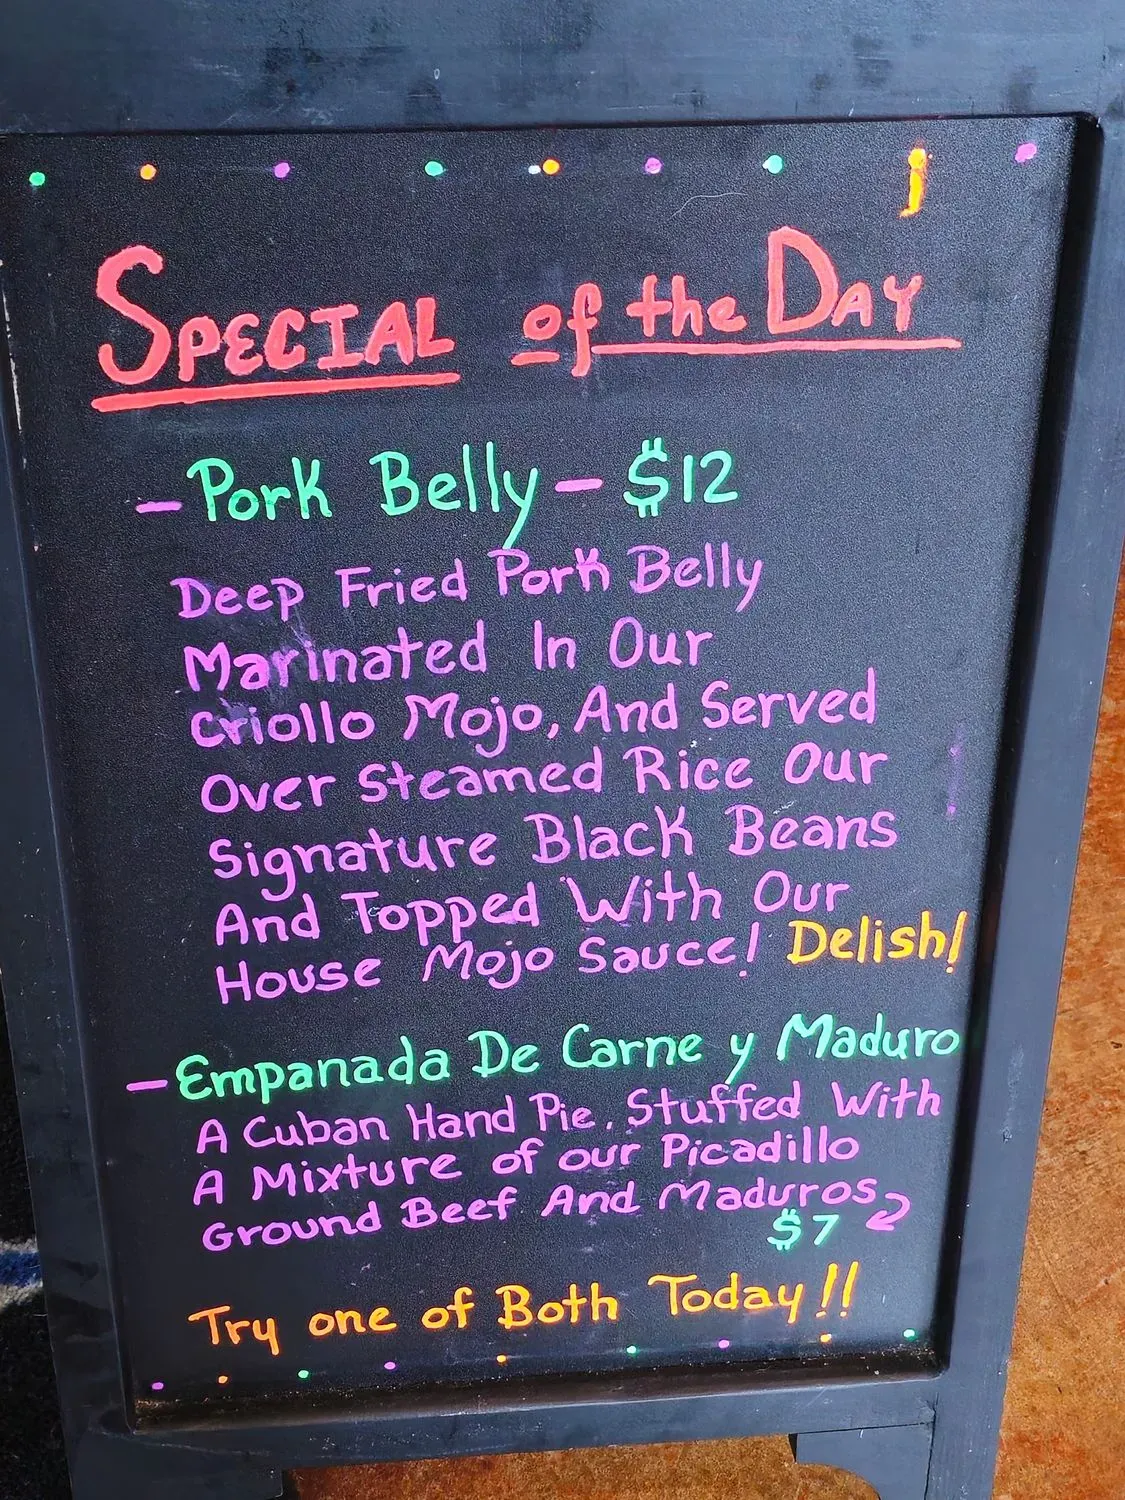 Special of the Day
- Pork Belly - $12
Deep Fried Pork Belly
Marinated In Our
Criollo Mojo, And Served
Over Steamed Rice Our
Signature Black Beans
And Topped With Our
House Mojo Sauce! Delish!
- Empanada De Carne y Maduro
A Cuban Hand Pie. Stuffed With
A Mixture of our Picadillo
Ground Beef And Maduros
$7
Try one of Both Today!!